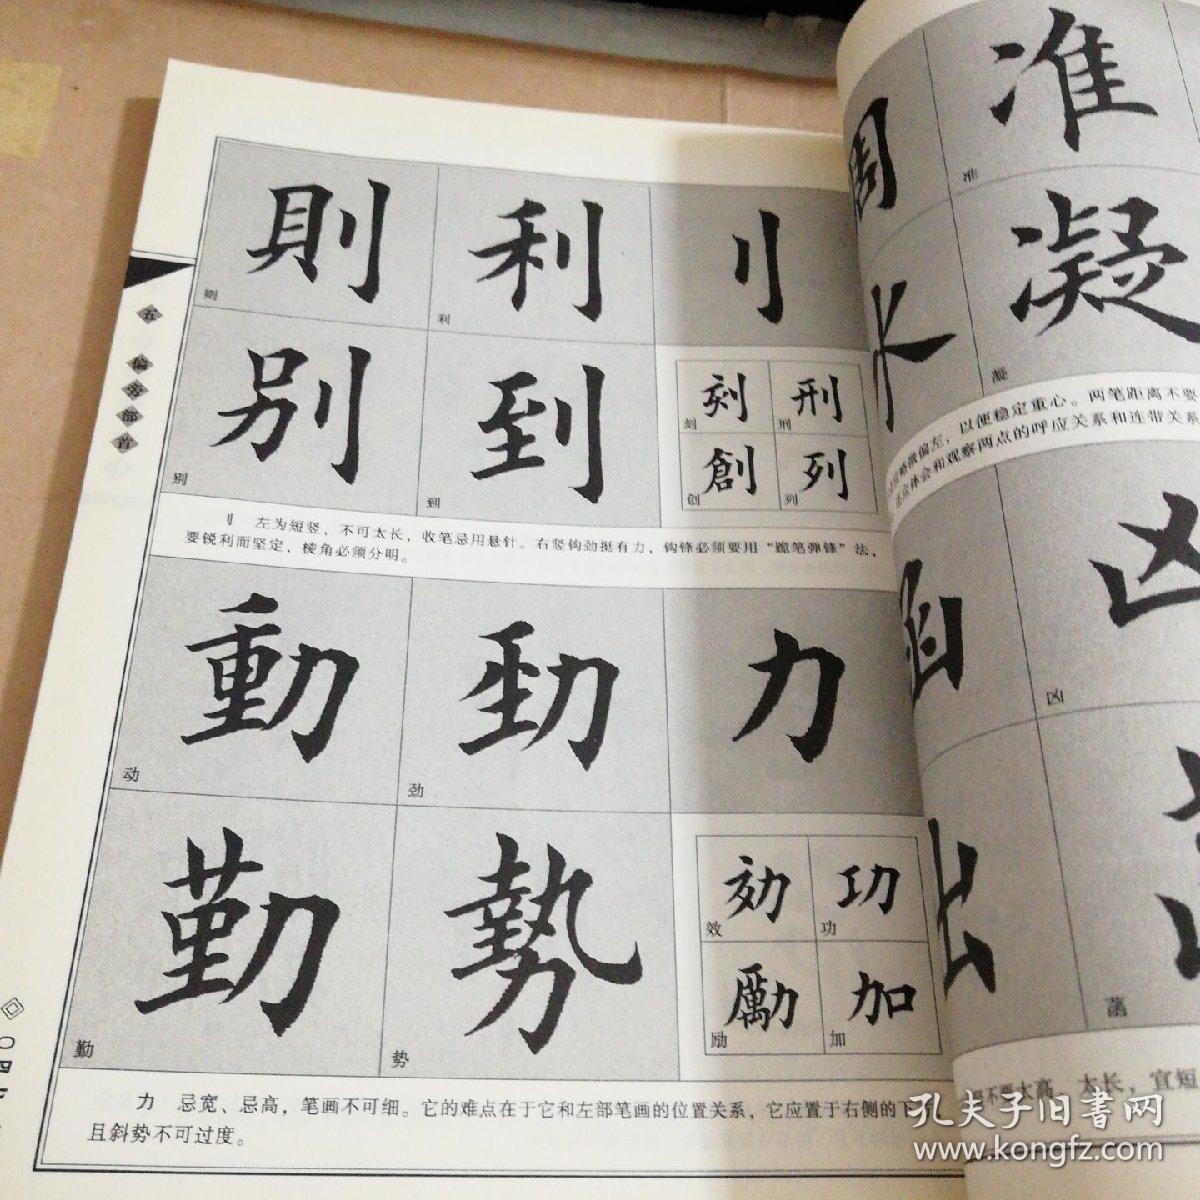 五 偏旁部首
則 利 刂
则 利
別 到
别 到
刻 刑
刻 刑
創 列
创 列
刂 左为短竖，不可太长，收笔忌用悬针。右竖钩劲挺有力，钩锋必须要用“蹲笔弹锋”法，
要锐利而坚定，棱角必须分明。
動 勁 力
动 劲
勤 勢
勤 势
効 功
效 功
勵 加
励 加
力 忌宽、忌高，笔画不可细。它的难点在于它和左部笔画的位置关系，它应置于右侧的下
且斜势不可过度。
准
准
凝
凝
偏左，以便稳定重心。两笔距离不要
体会和观察两点的呼应关系和连带关系
函 凶
凶
出
菡
不要太高、太长，宜短
孔夫子旧书网
www.kongfz.com